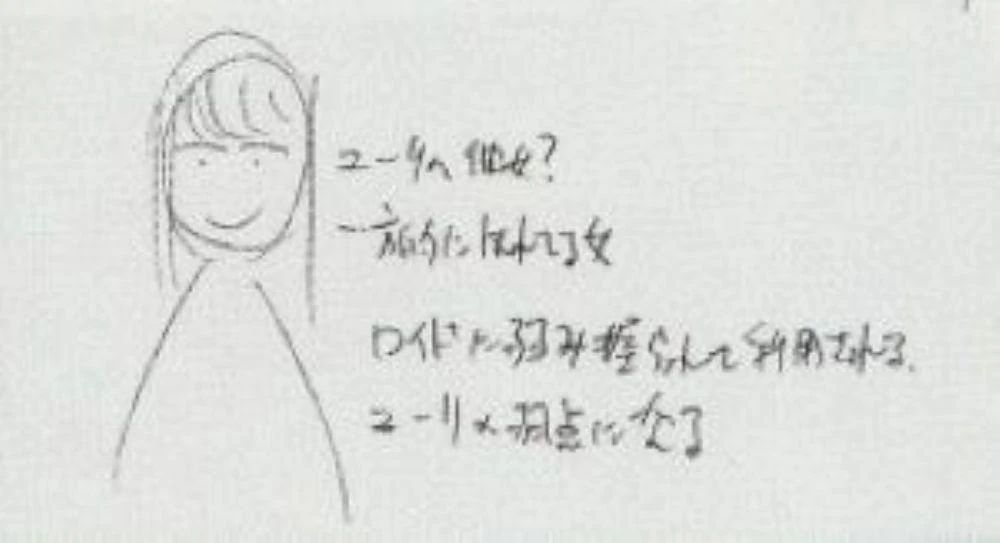 ユーリの彼女?
に惚れてる女
ロイドに弱み握られて利用される。
ユーリの弱点になる